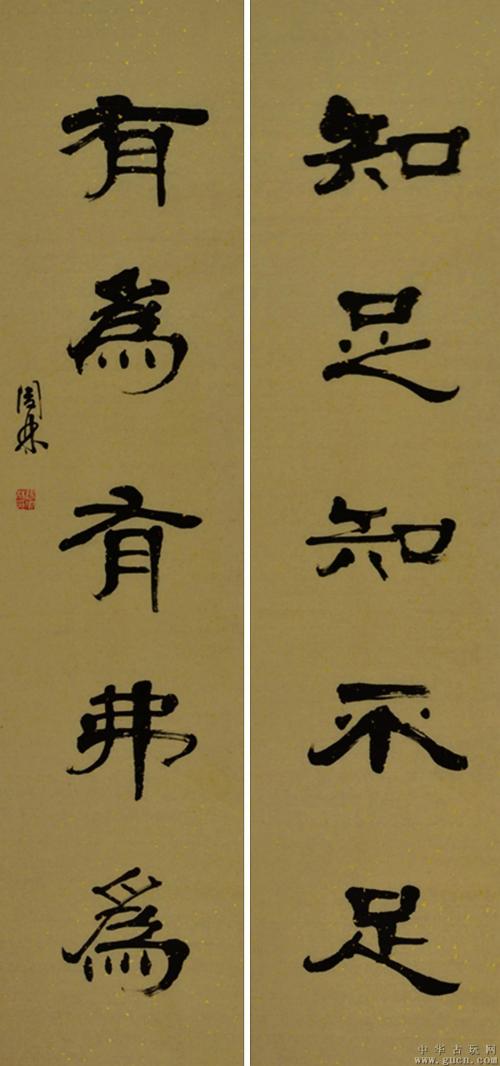 知足知不足
有為有弗為
中华古玩网
www.gucn.com